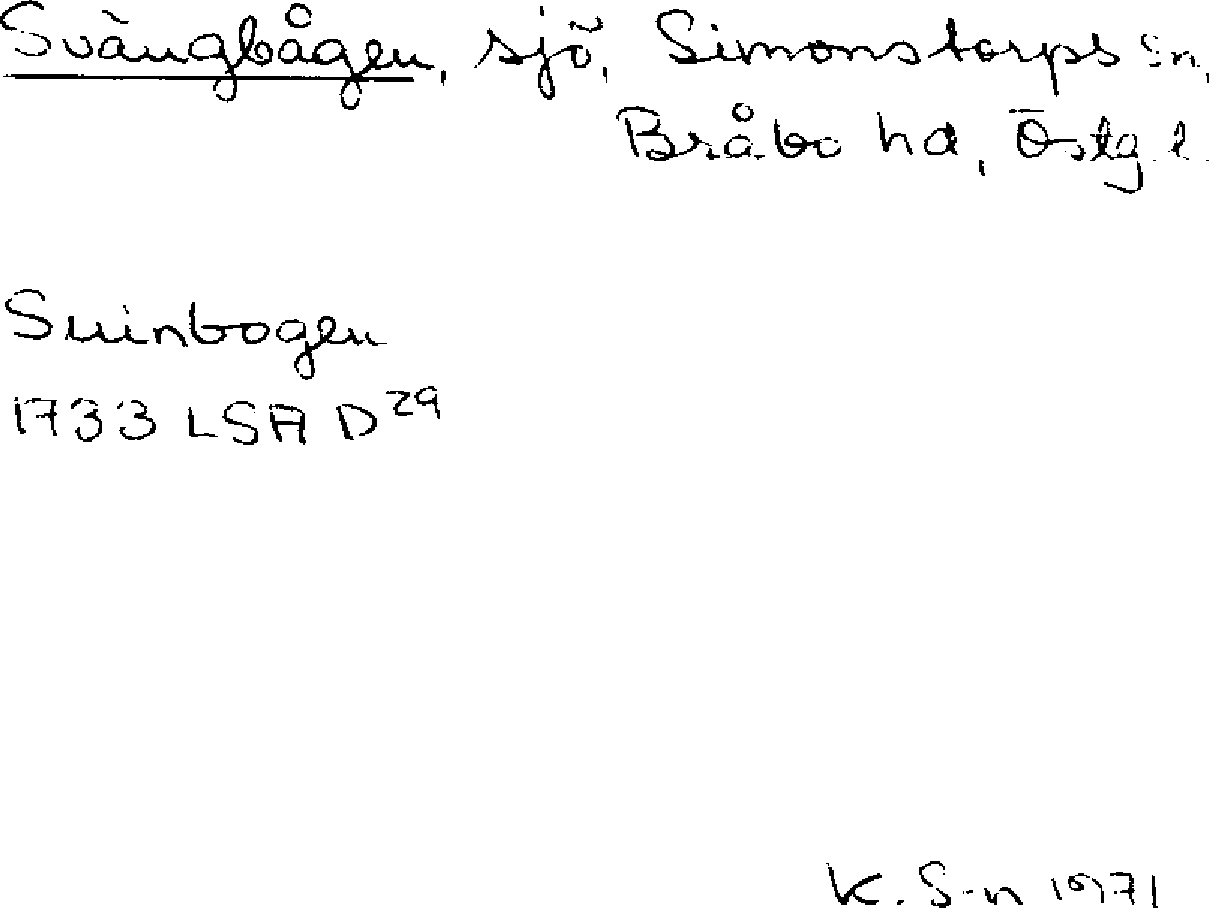 Svängbågen, sjö, Simonstorps sn,
Bråbo hd, Östg. l.
Suinbogen
1733 LSA D29
K. S-n 1971